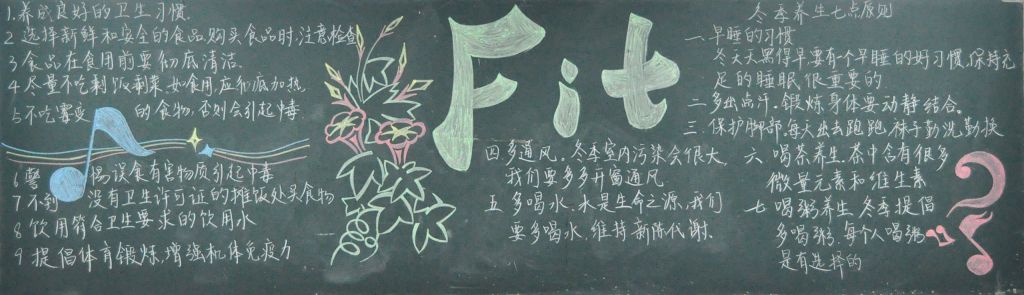 1.养成良好的卫生习惯.
2选择新鲜和安全的食品,购买食品时,注意检查
3食品在食用前要彻底清洁.
4尽量不吃剩饭剩菜,如食用,应彻底加热
5不吃霉变 的食物,否则会引起中毒
6警 惕误食有害物质引起中毒
7不到 没有卫生许可证的摊饭处买食物
8饮用符合卫生要求的饮用水
9提倡体育锻炼.增强机体免疫力
Fit
四.多通风.冬季室内污染会很大,
我们要多多开窗通风
五多喝水,水是生命之源,我们
要多喝水,维持新陈代谢.
冬季养生七点原则
一.早睡的习惯
冬天天黑得早要有个早睡的好习惯,保持充
足的睡眠很重要的
二.多出点汗.锻炼身体要动静结合。
三.保护脚部.每天出去跑跑 袜子勤洗勤换
六 喝茶养生.茶中含有很多
微量元素和维生素
七.喝粥养生.冬季提倡
多喝粥.每个人喝粥
是有选择的